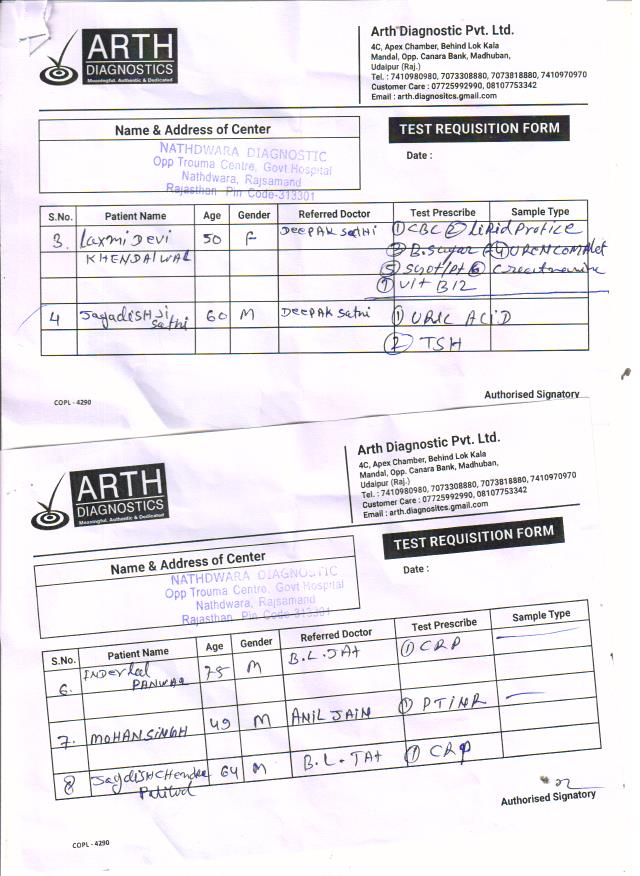 ARTH
DIAGNOSTICS
Meaningful, Authentic & Dedicated
Arth Diagnostic Pvt. Ltd.
4C, Apex Chamber, Behind Lok Kala
Mandal, Opp. Canara Bank, Madhuban,
Udaipur (Raj.)
Tel. : 7410980980, 7073308880, 7073818880, 7410970970
Customer Care : 07725992990, 08107753342
Email : arth.diagnositcs.gmail.com
Name & Address of Center
NATHDWARA DIAGNOSTIC
Opp Trouma Centre, Govt Hospital
Nathdwara, Rajsamand
Rajasthan Pin Code-313301
TEST REQUISITION FORM
Date :
S.No. Patient Name Age Gender Referred Doctor Test Prescribe Sample Type
3. Laxmi Devi 50 F DEEPAK Sethi ① CBC ② Lipid Profice
KHENDALWAL ③ B. Sugar ④ URENCOMPLET
⑤ SGOT/PT ⑥ Creatinine
⑦ Vit B12
4 JagadisH Ji 60 M DEEPAK Sethi ① URIC ACiD
Sethi
② TSH
COPL - 4290
Authorised Signatory
ARTH
DIAGNOSTICS
Meaningful, Authentic & Dedicated
Arth Diagnostic Pvt. Ltd.
4C, Apex Chamber, Behind Lok Kala
Mandal, Opp. Canara Bank, Madhuban,
Udaipur (Raj.)
Tel. : 7410980980, 7073308880, 7073818880, 7410970970
Customer Care : 07725992990, 08107753342
Email : arth.diagnositcs.gmail.com
Name & Address of Center
NATHDWARA DIAGNOSTIC
Opp Trouma Centre, Govt Hospital
Nathdwara, Rajsamand
Rajasthan Pin Code-313301
TEST REQUISITION FORM
Date :
S.No. Patient Name Age Gender Referred Doctor Test Prescribe Sample Type
6. PANWAR 75 M B.L. JAt ① CRP
7. MOHANSINGH 49 M ANIL JAIN ① PTINR
8 JaydisHCHendra 64 M B.L. JAt ① CRP
COPL - 4290
Authorised Signatory